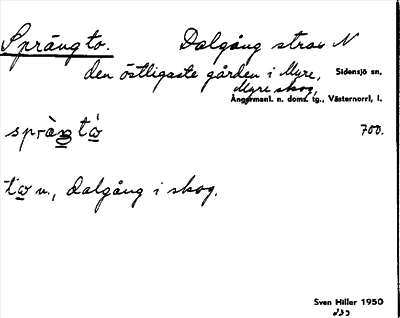 Sprängto. Dalgång strax N
den östligaste gården i Myre, Sidensjö sn,
Myre skog,
Ångermanl. n. doms. tg., Västernorrl. l.
700.
n., dalgång i skog.
Sven Hiller 1950